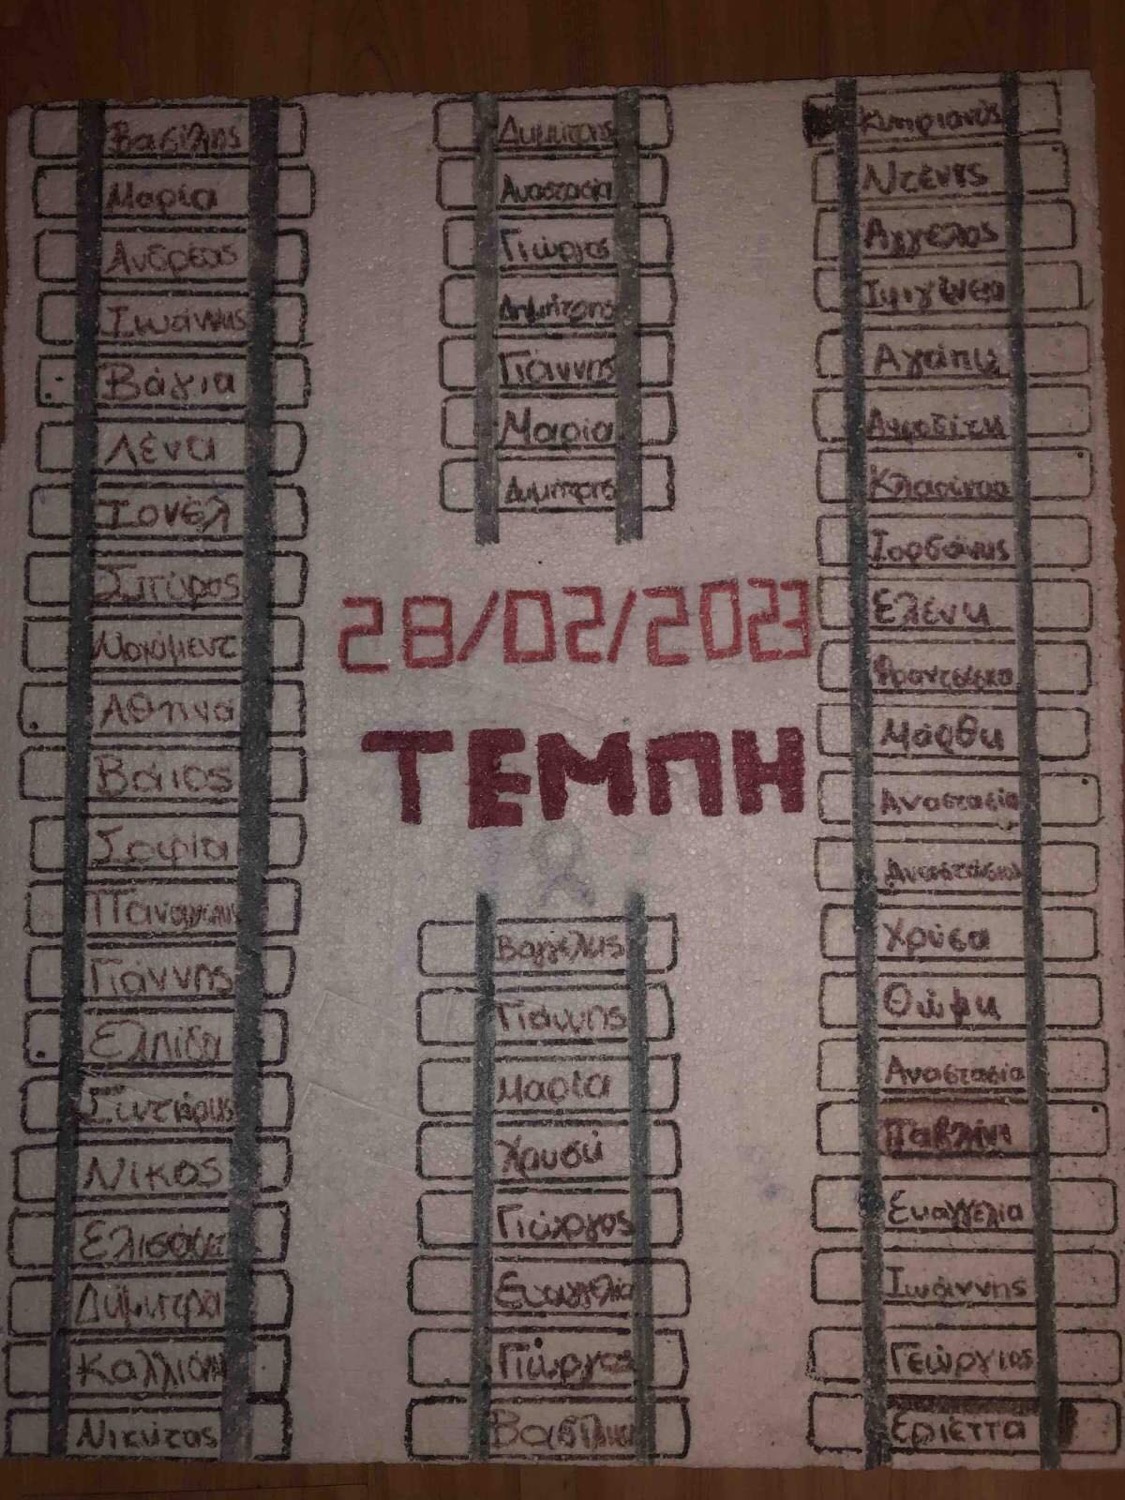 Βασίλης
Μαρία
Ανδρέας
Ιωάννης
Βάγια
Λένα
Ιονέλ
Σπύρος
Μοχάμεντ
Αθηνά
Βάιος
Σοφία
Παναγιώτης
Γιάννης
Ελπίδα
Σωτήρης
Νίκος
Ελισάβετ
Δήμητρα
Καλλιόπη
Νικήτας
Δημήτρης
Αναστασία
Γιώργος
Δημήτρης
Γιάννης
Μαρία
Δημήτρης
28/02/2023
ΤΕΜΠΗ
Βαγγέλης
Γιάννης
Μαρία
Χρυσή
Γιώργος
Ευαγγελία
Γιώργος
Κυπριανός
Ντένις
Άγγελος
Ιφιγένεια
Αγάπη
Αφροδίτη
Κλαούντιο
Ιορδάνης
Ελένη
Φραντσέσκα
Μάρθη
Αναστασία
Αναστασία
Χρύσα
Θώμη
Αναστασία
Παβλίνι
Ευαγγελία
Ιωάννης
Γεώργιος
Εριέττα